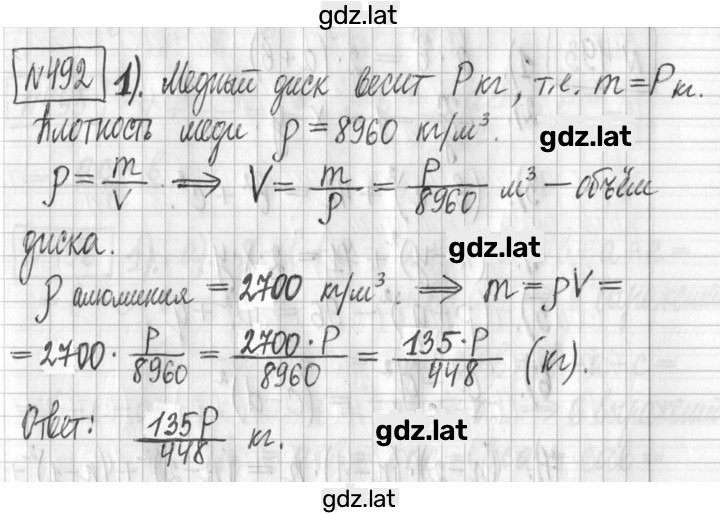 gdz.lat
№492 1). Медный диск весит P кг, т.е. m = P кг.
Плотность меди ρ = 8960 кг/м³.
gdz.lat
ρ = m/V ⟹ V = m/ρ = P/8960 м³ – объём
диска.
gdz.lat
ρ алюминия = 2700 кг/м³. ⟹ m = ρV =
= 2700 · P/8960 = 2700·P/8960 = 135·P/448 (кг).
Ответ: 135P/448 кг.
gdz.lat
gdz.lat